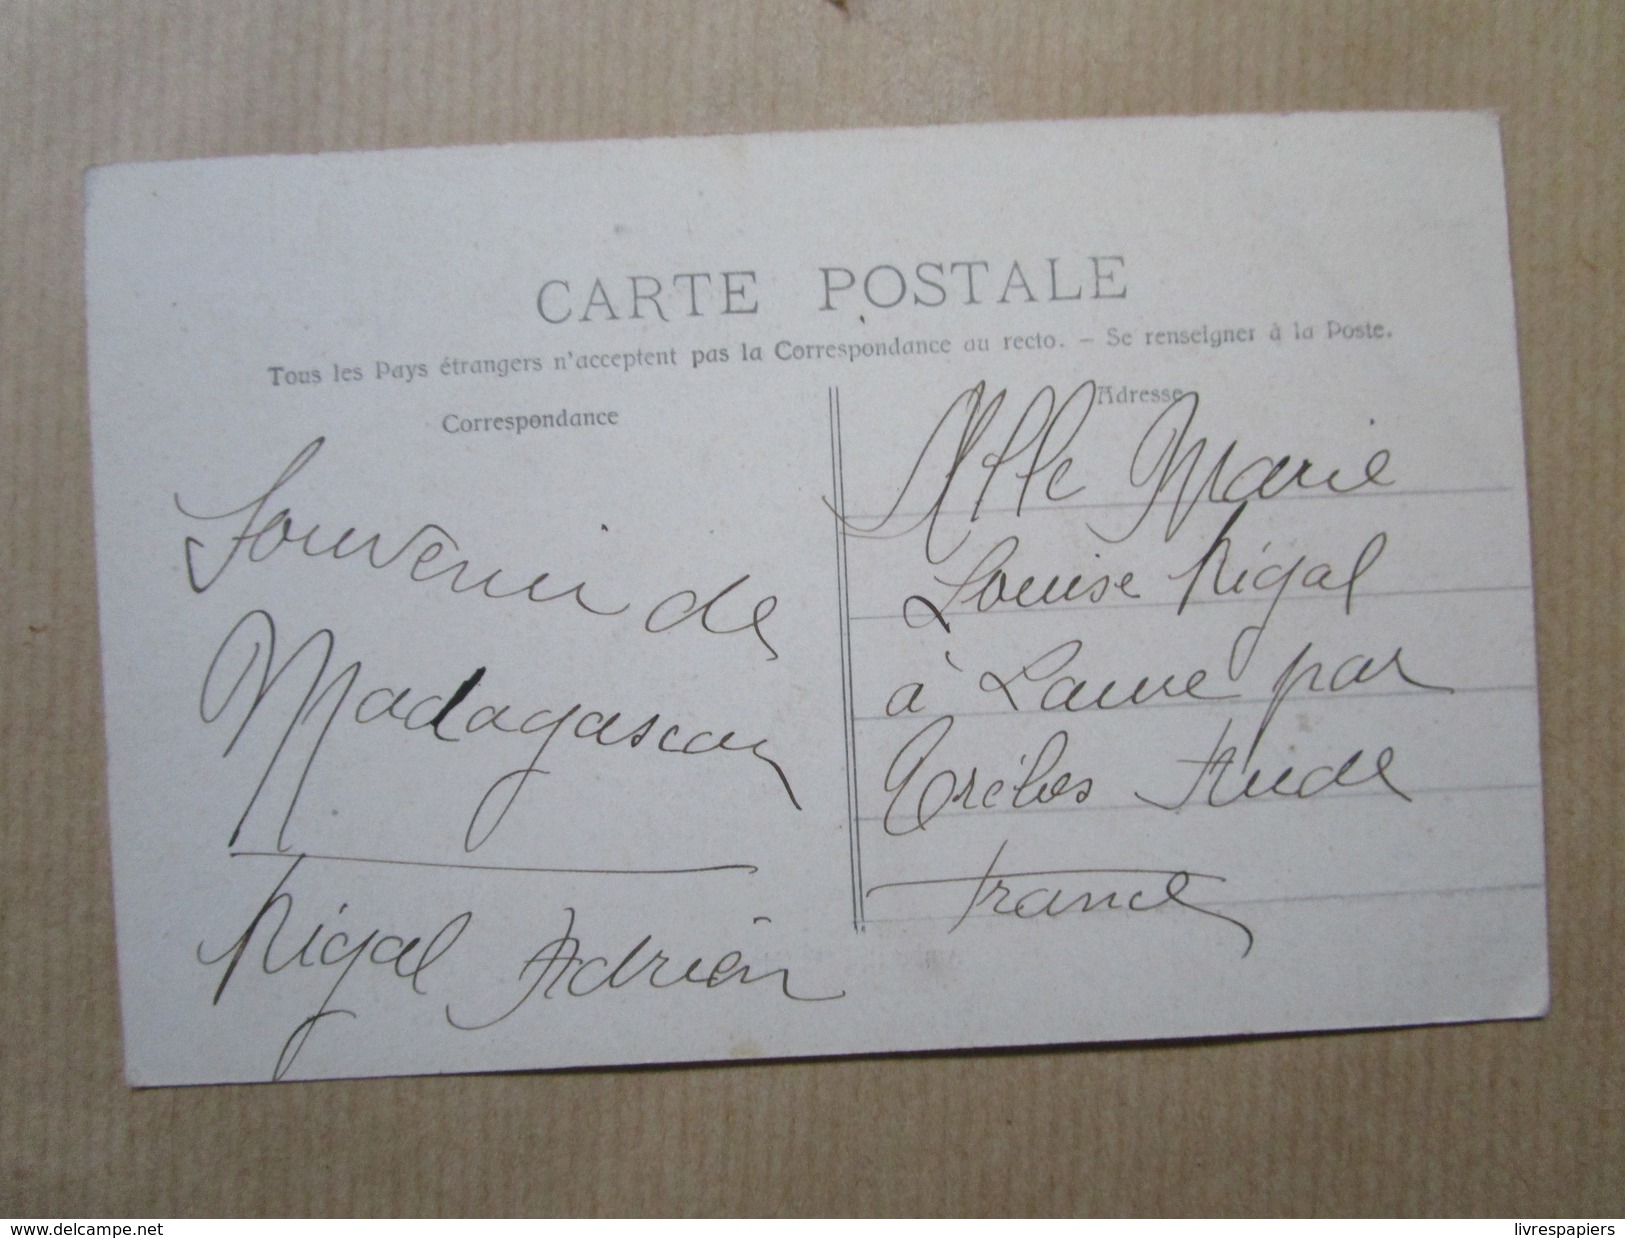 CARTE POSTALE
Tous les Pays étrangers n'acceptent pas la Correspondance au recto. – Se renseigner à la Poste.
Correspondance
Souvenir de
Madagascar
Rigal Adrien
Adresse
Mlle Marie
Louise Rigal
à Laure par
Trèbes Aude
France
www.delcampe.net
livrespapiers